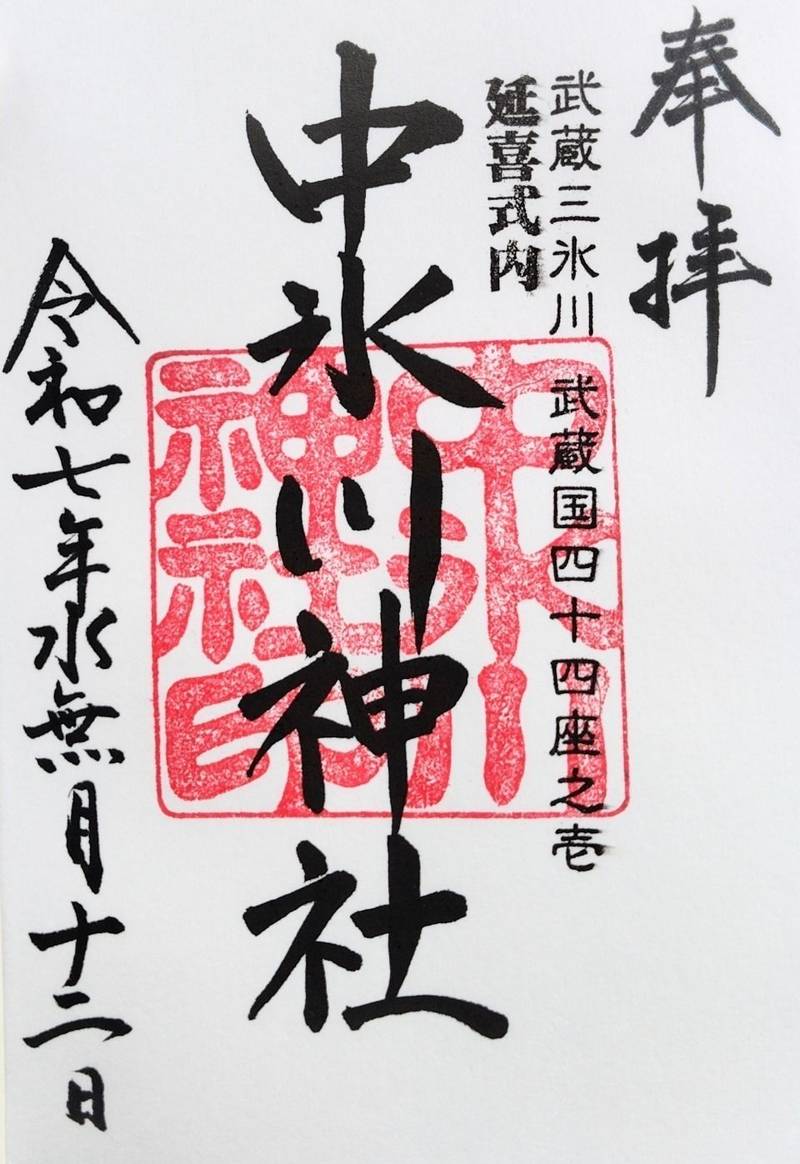 奉拝
武蔵三氷川 武蔵国四十四座之壱
延喜式内
中氷川神社
中氷川神社神社印
令和七年水無月十二日